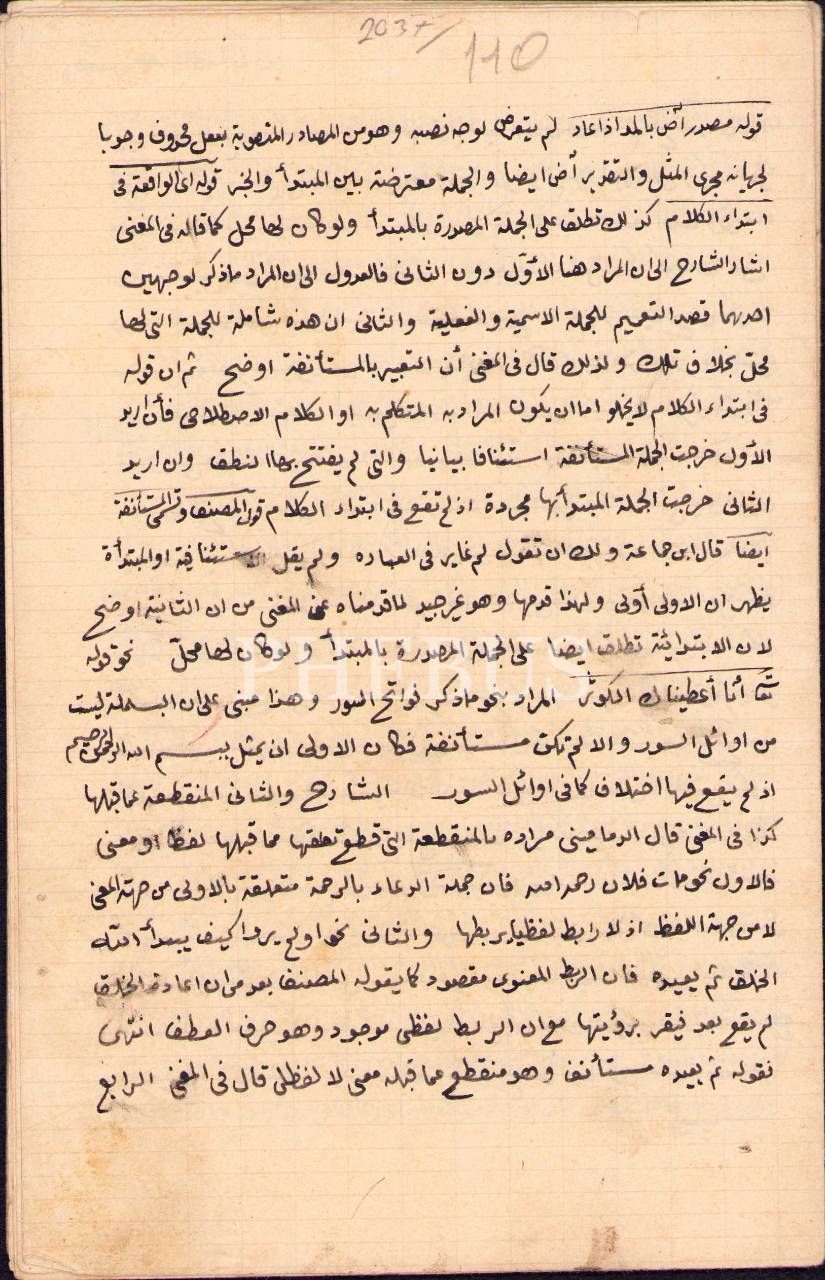 203+/
110
قوله مصدر أض بالمد اذا عاد لم يتعرض لوجه نصبه وهو من المصادر المنصوبة بفعل محذوف وجوبا
لجريانه مجرى المثل والتقدير أض ايضا والجملة معترضة بين المبتدأ والخبر قوله اى الواقعة فى
ابتداء الكلام كذلك تطلق على الجملة المصدرة بالمبتدأ ولو كان لها محل كما قاله فى المغنى
اشار الشارح الى ان المراد هنا الأوّل دون الثانى فالعدول الى ان المراد ما ذكر لوجهين
احدهما قصد التعميم للجملة الاسمية والفعلية والثانى ان هذه شاملة للجملة التى لها
محلّ بخلاف تلك ولذلك قال فى المغنى أن التعبير بالمستأنفة اوضح ثم ان قوله
فى ابتداء الكلام لا يخلو اما ان يكون المراد به المتكلم به او الكلام الاصطلاحى فأن اريد
الأول خرجت الجملة المستأنفة استئنافا بيانيا والتى لم يفتتح بها النطق وان اريد
الثانى خرجت الجملة المبتدأ بها مجردة اذ لم تقع فى ابتداء الكلام قول المصنف وتسمى المستأنفة
ايضا قال ابن جماعة ولك ان تقول لم غاير فى العباره ولم يقل الاستئنافية او المبتدأة
يظهر ان الاولى أولى ولهذا قدمها وهو غير جيد لما قدمناه عن المغنى من ان الثانية اوضح
لان الابتدائية تطلق ايضا على الجملة المصدرة بالمبتدأ ولو كان لها محلّ نحو قوله
تعا أنا أعطيناك الكوثر المراد بنحو ما ذكر فواتح السور وهذا مبنى على ان البسملة ليست
من اوائل السور والا لم تكن مستأنفة فكان الاولى ان يمثل ببسم الله الرحمن الرحيم
اذ لم يقع فيها اختلاف كما فى اوائل السور الشارح والثانى المنقطعة عما قبلها
كذا فى المغنى قال الدمامينى مراده بالمنقطعة التى قطع تعلقها مما قبلها لفظا او معنى
فالاول نحو مات فلان رحمه الله فان جملة الدعاء بالرحمة متعلقة بالاولى من جهة المعنى
لا من جهة اللفظ اذ لا رابط لفظيا يربطها والثانى نحو اولم يروا كيف يبدأ الله
الخلق ثم يعيده فان الربط المعنوى مقصود كما يقوله المصنف بعد من ان اعادة الخلق
لم يقع بعد فيقر برؤيتها مع ان الربط لفظى موجود وهو حرف العطف انتهى
فقوله ثم يعيده مستأنف وهو منقطع عما قبله معنى لا لفظا قال فى المغنى الرابع
PHEBUS